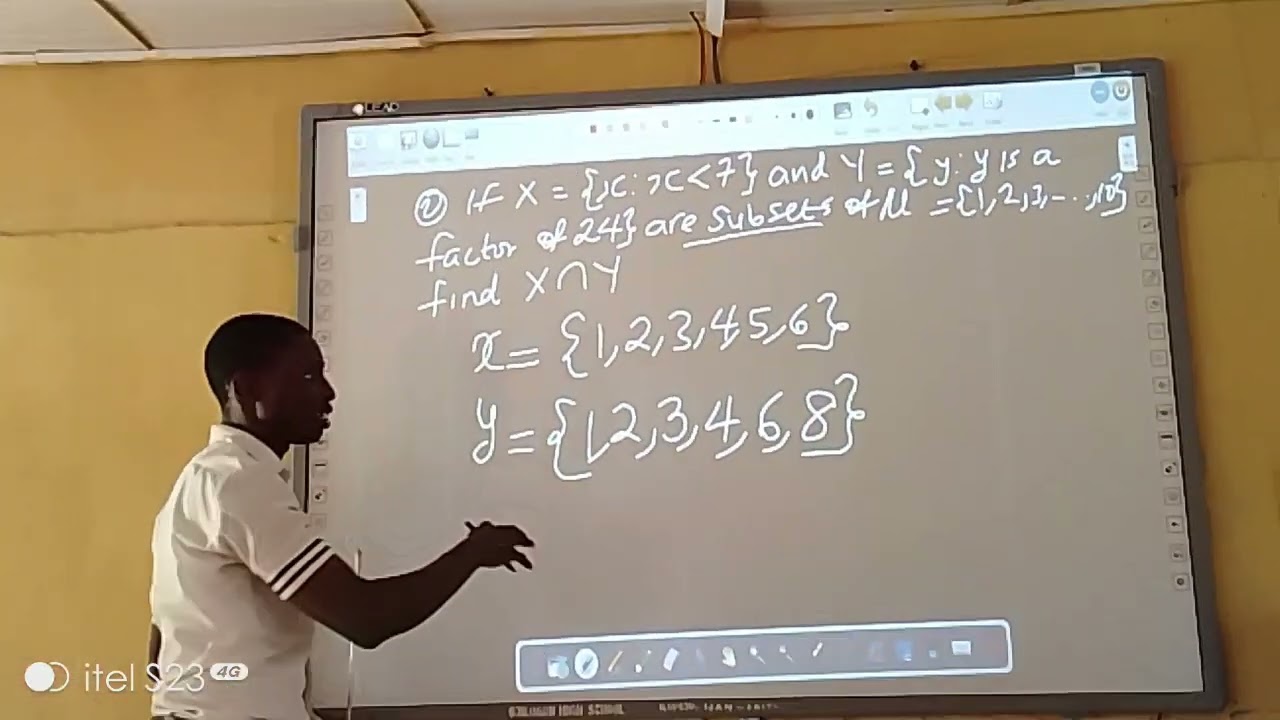 LEAD
② If X = {x: x<7} and Y = {y: y is a
factor of 24} are subsets of U = {1,2,3,-...,10}
find X∩Y
x = {1,2,3,4,5,6}
y = {1,2,3,4,6,8}
HIGH SCHOOL
itel S23 4G